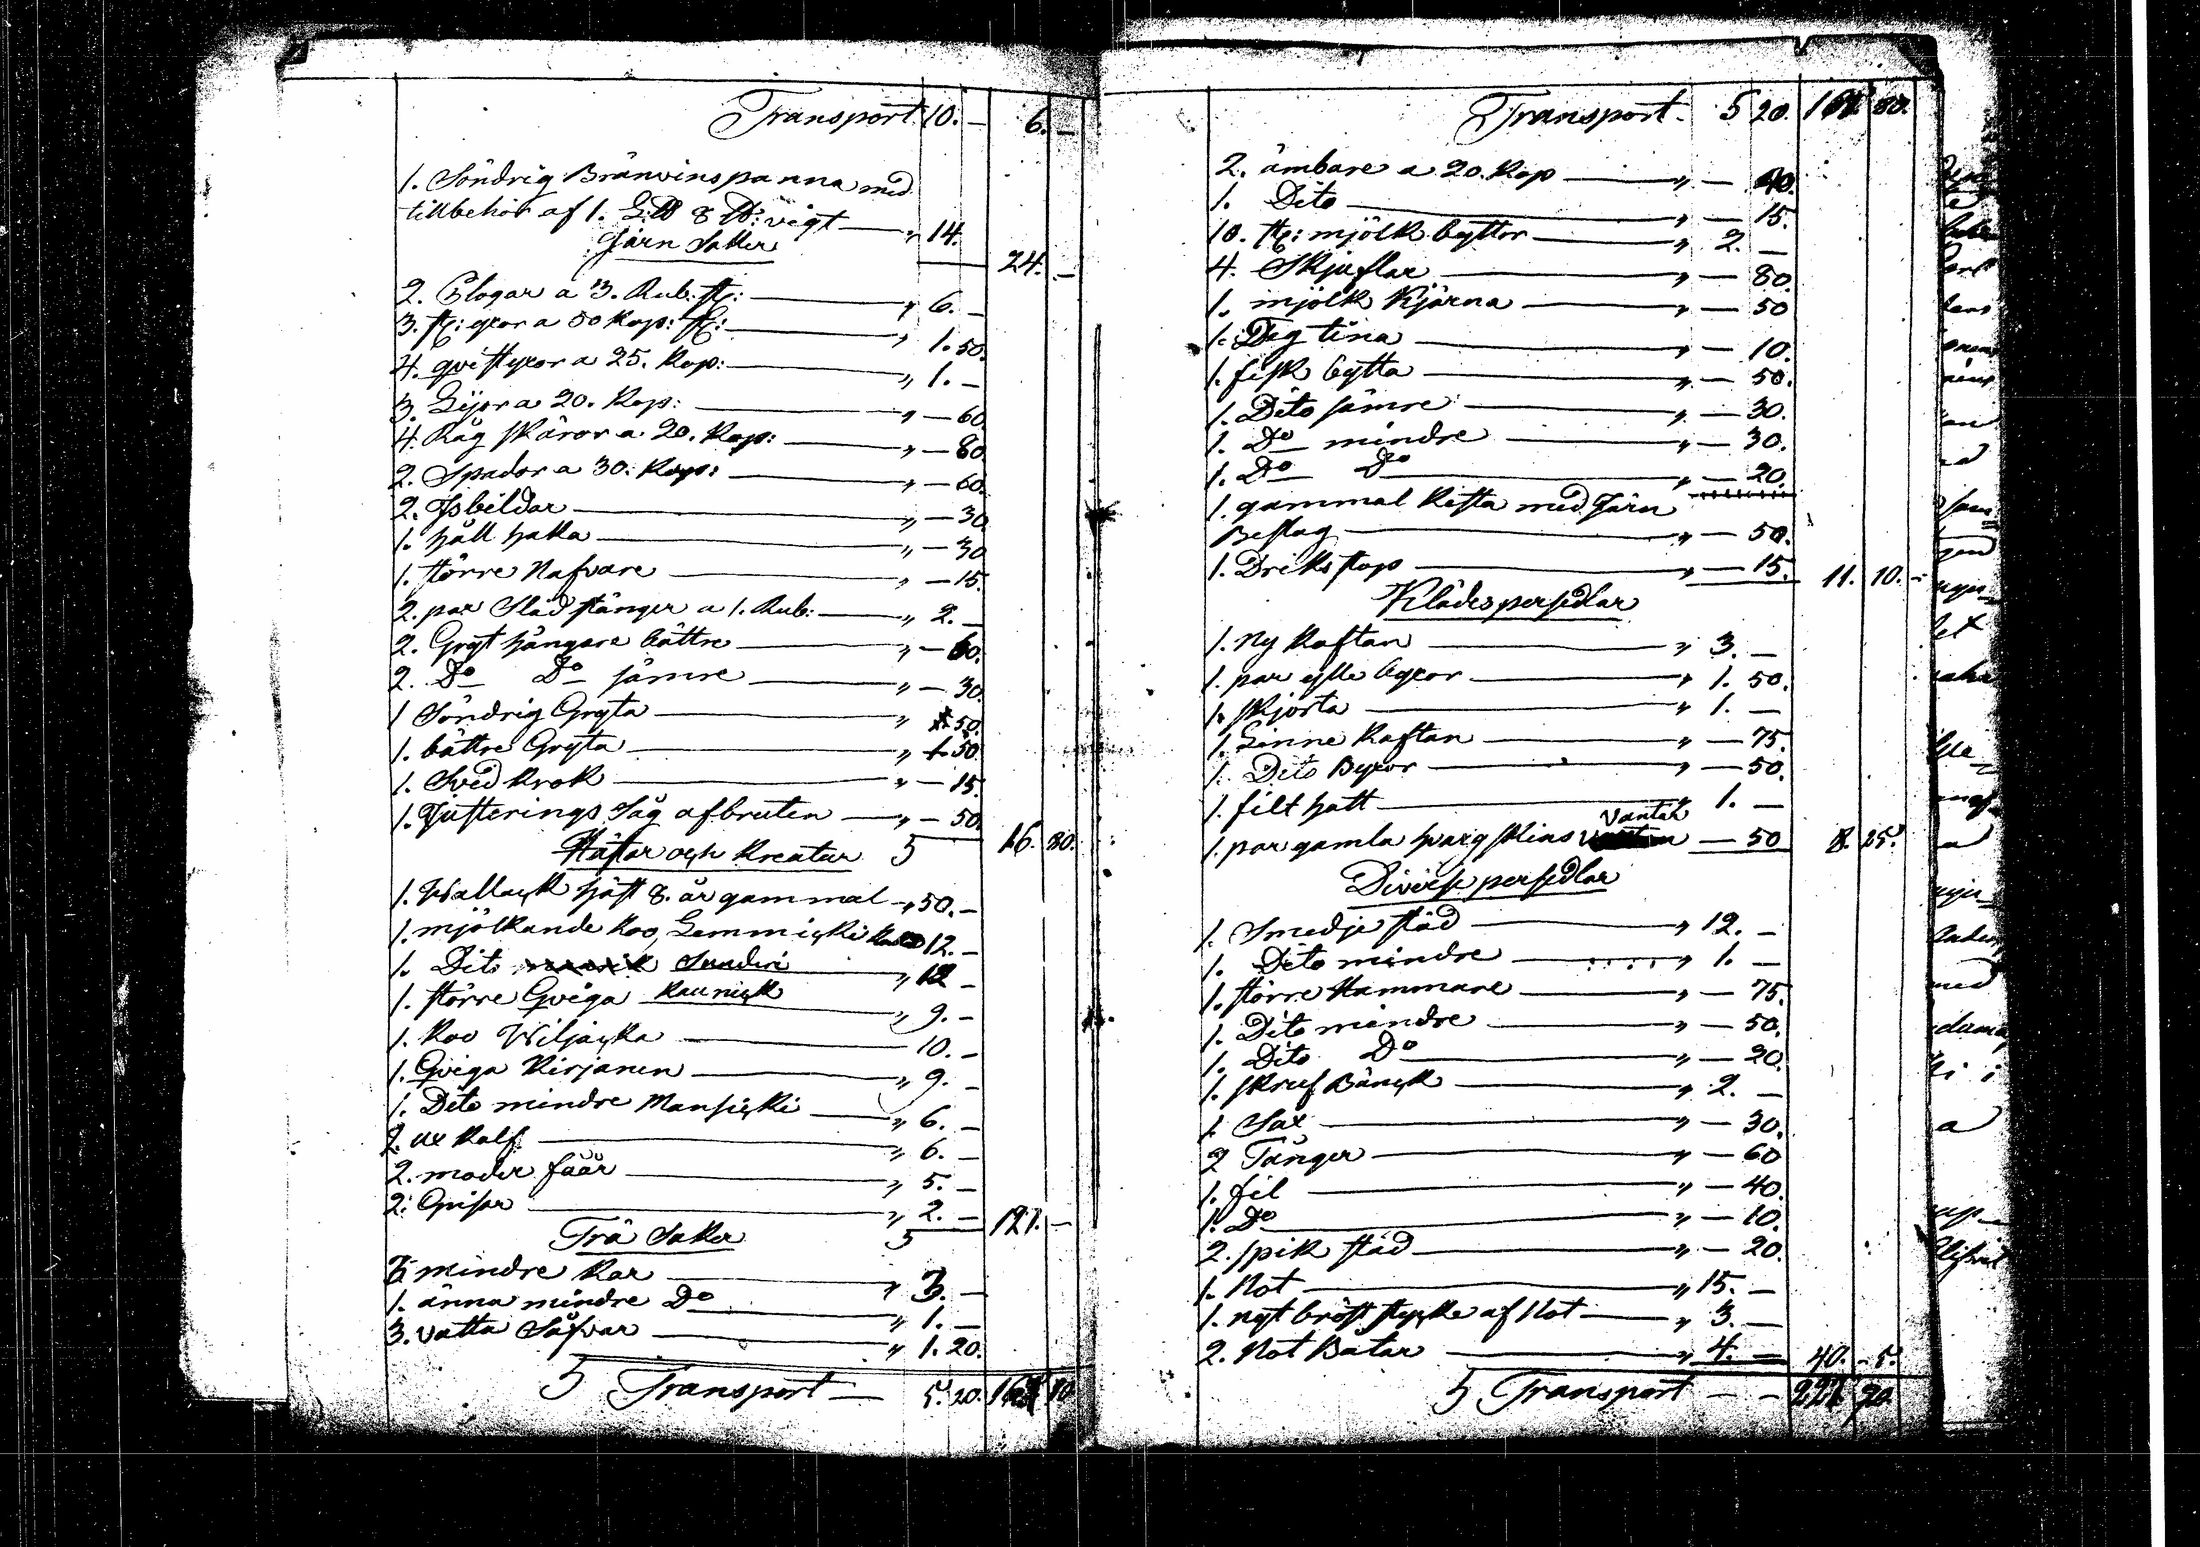 Transport 10. — 6. —
1. Söndrig Bränvinspanna med
tillbehör af 1. L℔ 8 ℔: vigt — „ 14.
Järn Saker 24. —
2. Plogar a 3. Rub. st: — „ 6. —
3. st: yxor a 50 Kop: st: — „ 1. 50.
4. qvistyxor a 25. Kop: — „ 1. —
3. Lijor a 20. Kop: — „ — 60.
4. Råg skäror a 20. Kop: — „ — 80
2. Spador a 30. Kop: — „ — 60.
2. Isbildar — „ — 30
1. håll haka — „ — 30
1. större Nafvare — „ — 15.
2. par Släd stänger a 1. Rub: — „ 2. —
2. Gryt hängare bättre — „ — 60.
2. Do Do sämre — „ — 30.
1 Söndrig Gryta — „ 50.
1. bättre Gryta — „ 50
1. Sved krok — „ — 15.
1. Justerings Såg afbruten — „ — 50. 16. 80.
Hästar och Kreatur 5
1. Wallack häst 8. år gammal — „ 50. —
1. mjölkande Koo, Lemmicki 12. —
1. Dito Sunderi „ 12 —
1. större Qviga Kaunick „ 9. —
1. Koo Wiljacka — 10. —
1. Qviga Kirjanen — „ 9. —
1. Dito mindre Mansicki — „ 6. —
2. ux Kalf — „ 6. —
2. moder fåår — „ 5. —
2. Grisar — „ 2. — 121. —
Trä Saker 5
3 mindre Kar — „ 3. —
1. änna mindre Do — „ 1. —
3. vatta Såfvar — „ 1. 20.
5 Transport — 5. 20.
Transport — 5 20. 80.
2. ämbare a 20. Kop — „ — 40.
1. Dito — „ — 15.
10. st: mjölk byttor — „ 2. —
4. Skjuflar — „ — 80
1. mjölk Kjärna — „ — 50
1. Deg tina — „ — 10.
1. fisk bytta — „ — 50.
1. Dito sämre — „ — 30.
1. Do mindre — „ — 30.
1. Do Do — „ — 20.
1. gammal Kista med Järn
Beslag — „ — 50.
1. Driksstop — „ — 15. 11. 10. —
Klädespersedlar
1. Ny Kaftan — „ 3. —
1. par ylle byxor — „ 1. 50.
1. skjorta — „ 1. —
1. Linne Kaftan — „ — 75.
1. Dito Byxor — „ — 50.
1. filt hatt — „ 1. —
1. par gamla hvarg skins Vantar — 50 8. 25.
Diverse persedlar
1. Smedje städ — „ 12. —
1. Dito mindre — „ 1. —
1. större Hammare — „ — 75.
1. Dito mindre — „ — 50.
1. Dito Do — „ — 20.
1. skruf Bänck — „ 2. —
1. Sax — „ — 30.
2 Tänger — „ — 60
1. fil — „ — 40.
1. Do — „ — 10.
2. spik städ — „ — 20.
1. Not — „ 15. —
1. nyt bröst stycke af Not — „ 3. —
2. Not Båtar — „ 4. — 40. — 5.
5 Transport — —